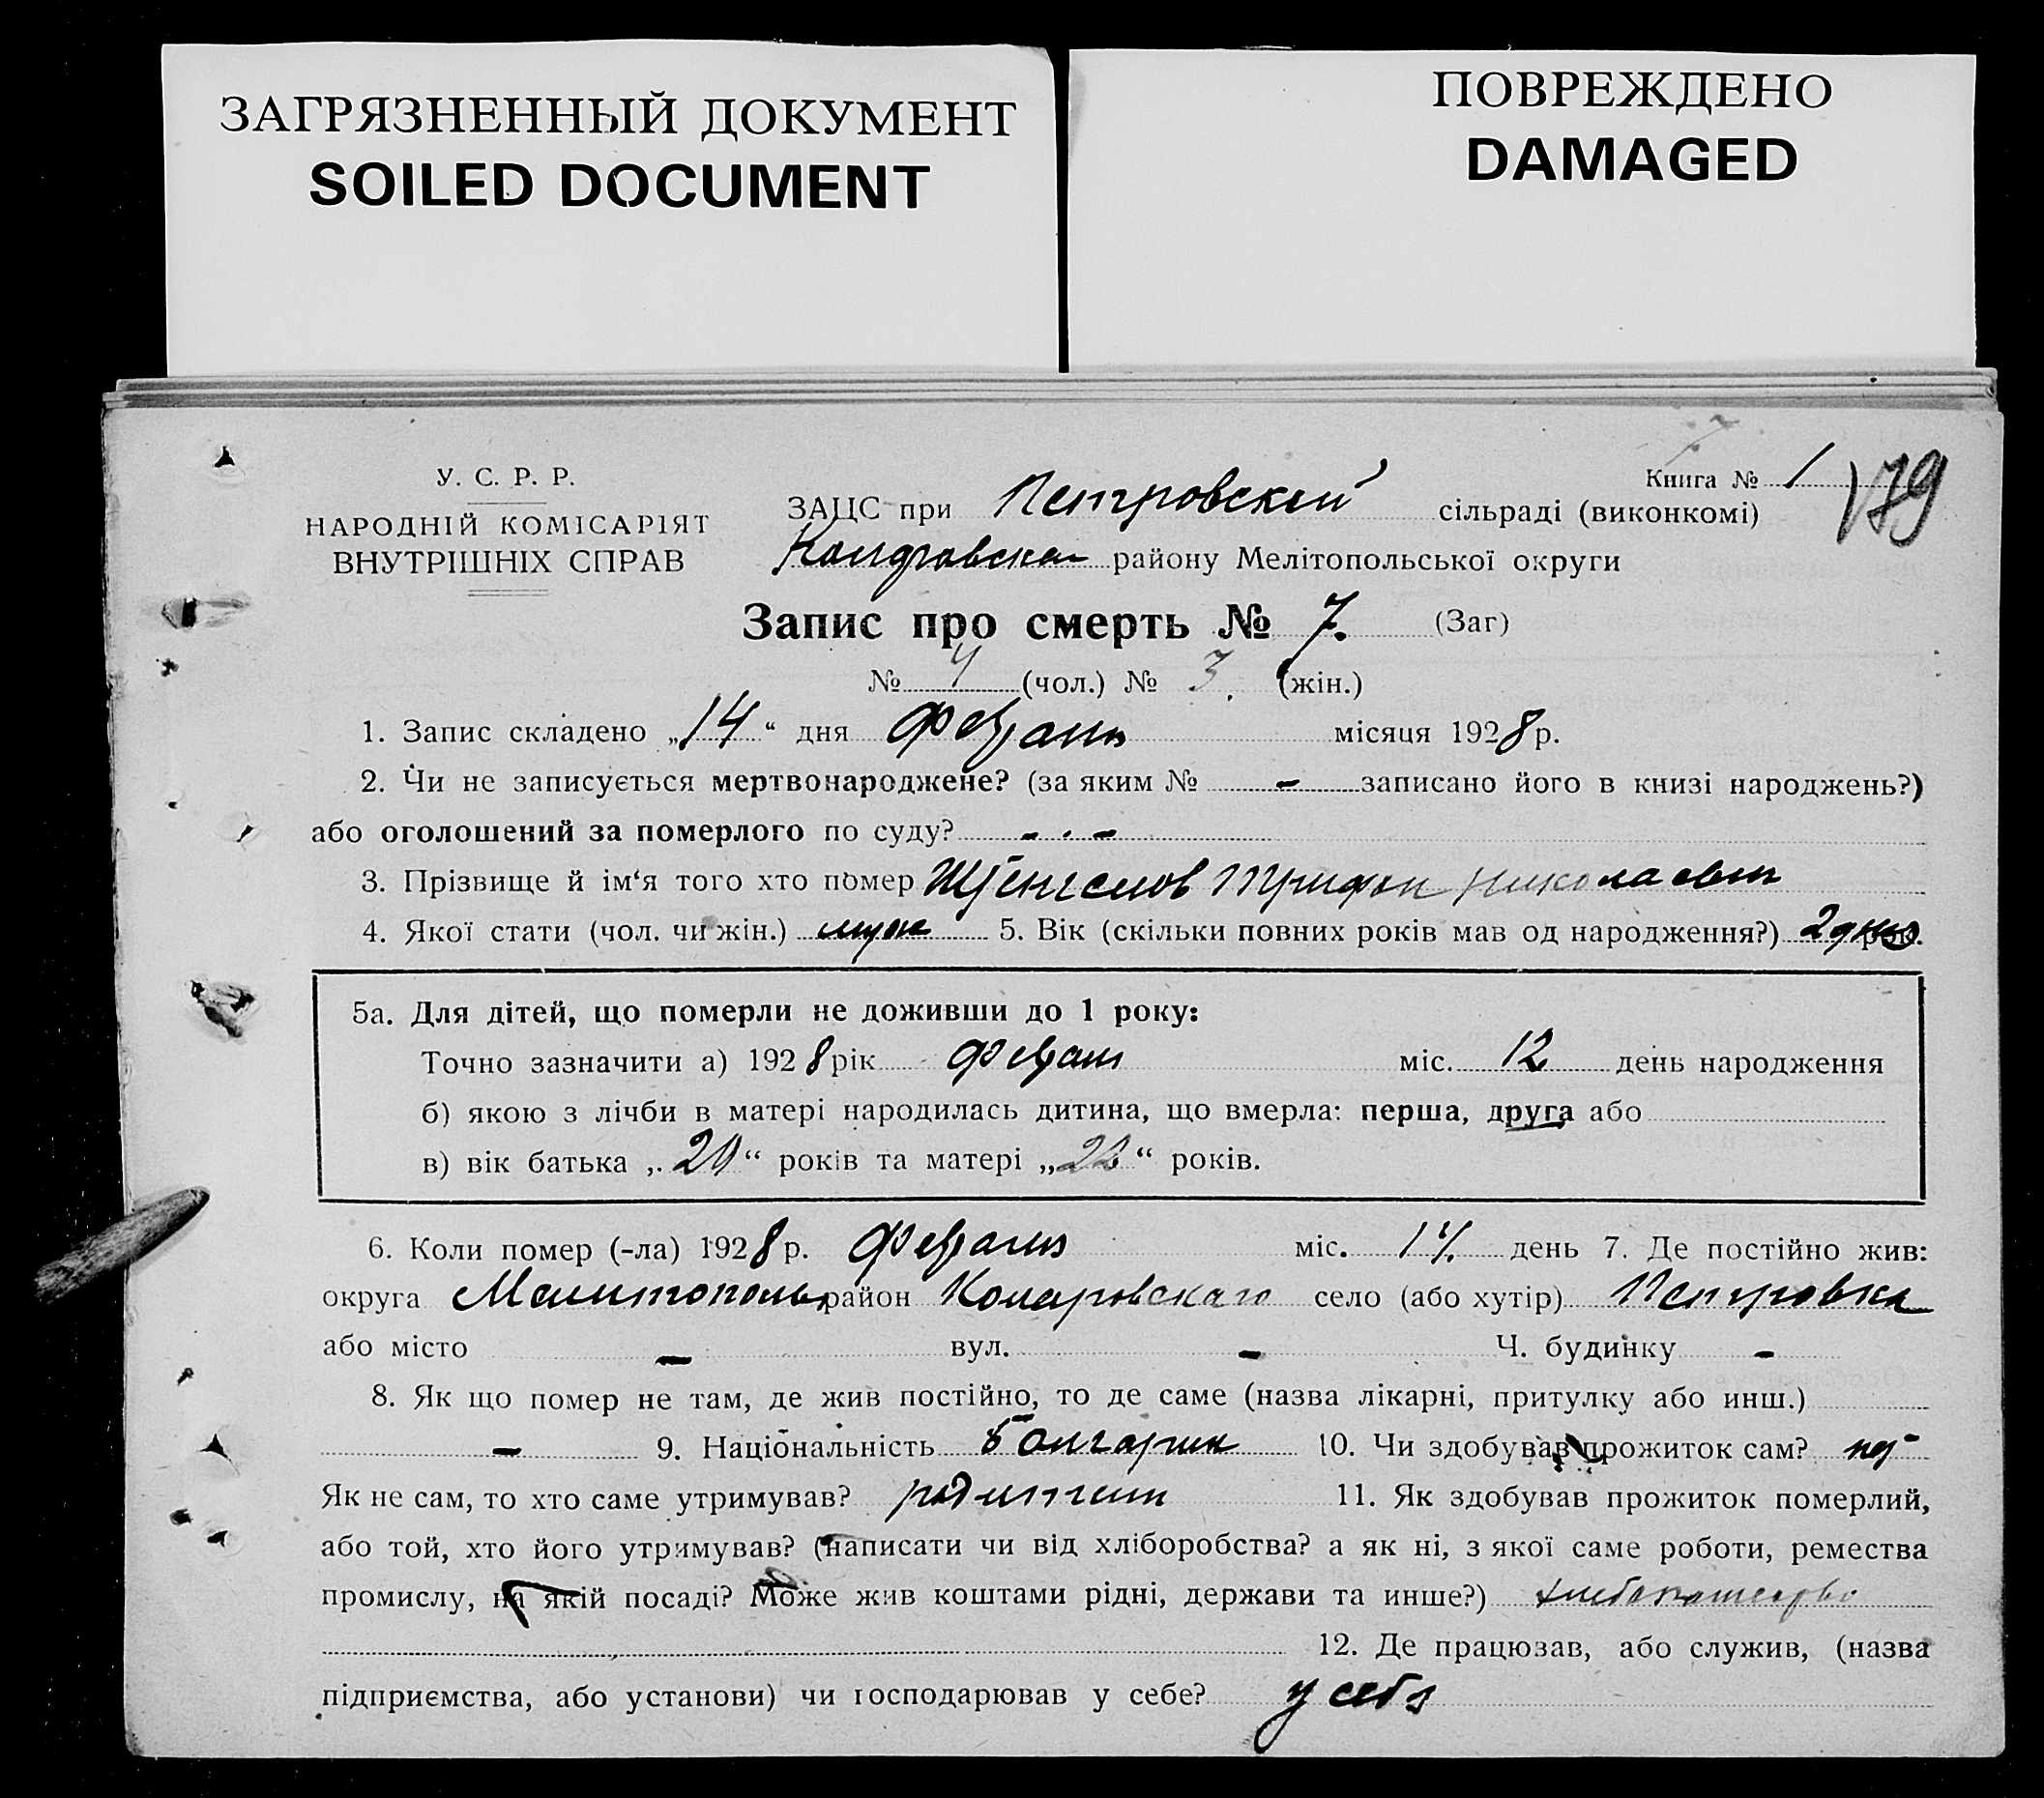 ЗАГРЯЗНЕННЫЙ ДОКУМЕНТ
SOILED DOCUMENT
ПОВРЕЖДЕНО
DAMAGED
У. С. Р. Р.
НАРОДНІЙ КОМІСАРІЯТ
ВНУТРІШНІХ СПРАВ
Книга № 1
179
ЗАЦС при Петровской сільраді (виконкомі)
району Мелітопольської округи
Запис про смерть № 7. (Заг)
№ 4 (чол.) № 3. (жін.)
1. Запис складено „14“ дня Февраля місяця 1928 р.
2. Чи не записується мертвонароджене? (за яким № - записано його в книзі народжень?)
або оголошений за померлого по суду? - . -
3. Прізвище й ім‘я того хто помер Трифон Николаевич
4. Якої стати (чол. чи жін.) муж 5. Вік (скільки повних років мав од народження?) 2 дня
5а. Для дітей, що померли не доживши до 1 року:
Точно зазначити а) 1928 рік Февраля міс. 12 день народження
б) якою з лічби в матері народилась дитина, що вмерла: перша, друга або
в) вік батька „ “ років та матері „22“ років.
6. Коли помер (-ла) 1928 р. Февраля міс. 14. день 7. Де постійно жив:
округа Мелитополь район село (або хутір) Петровка
або місто - вул. - Ч. будинку -
8. Як що помер не там, де жив постійно, то де саме (назва лікарні, притулку або инш.)
- 9. Національність Болгарин 10. Чи здобував прожиток сам?
Як не сам, то хто саме утримував? родители 11. Як здобував прожиток померлий,
або той, хто його утримував? (написати чи від хліборобства? а як ні, з якої саме роботи, ремества
промислу, на якій посаді? Може жив коштами рідні, держави та инше?) хлебопашество
12. Де працював, або служив, (назва
підприємства, або установи) чи господарював у себе? у себя